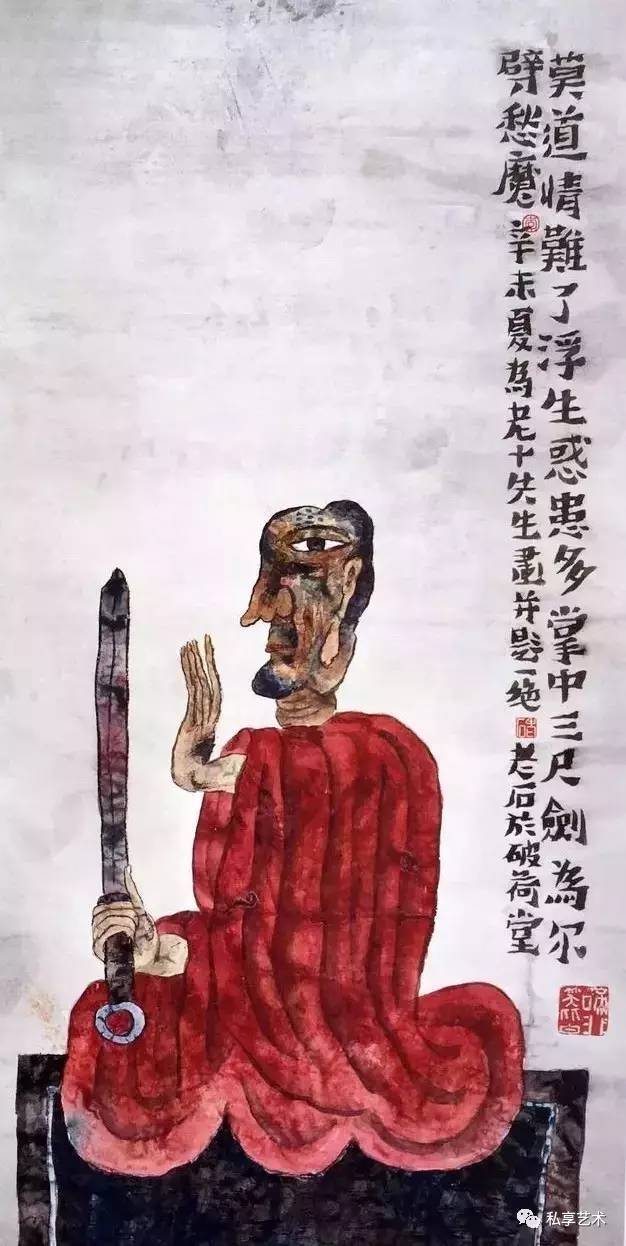 莫道情難了浮生惑患多掌中三尺劍為尔
劈愁魔
辛未夏為老十先生畫并题一绝
老石於破荷堂
私享艺术